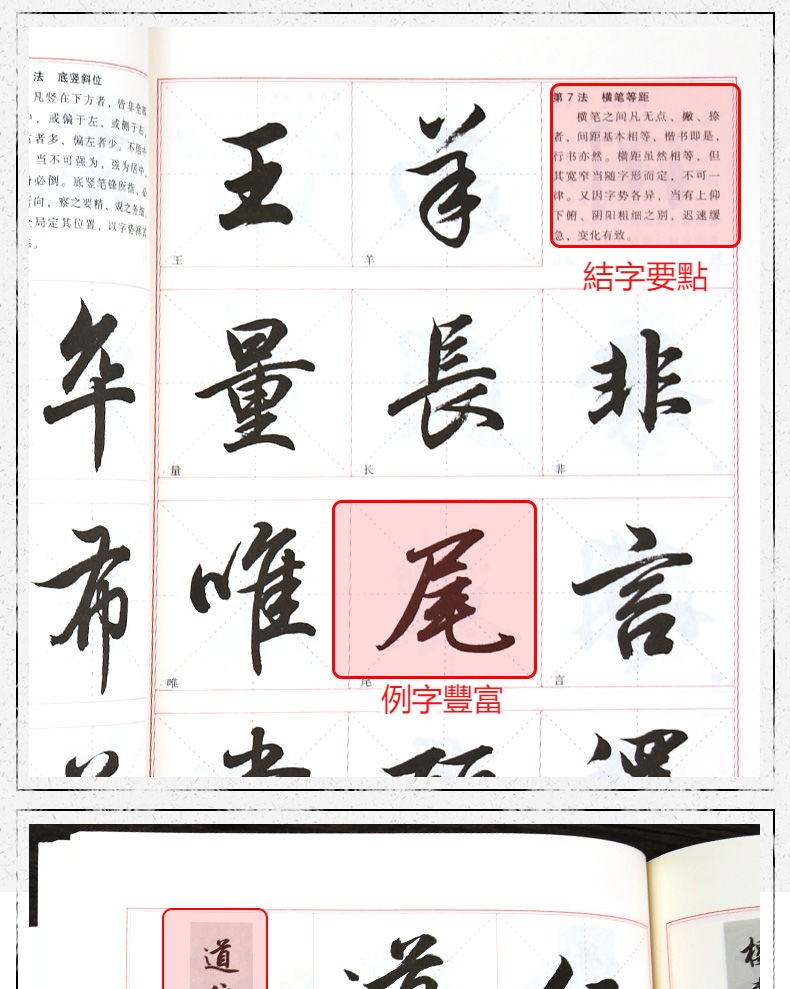 法 底竖斜位
凡竖在下方者，皆非全
，或偏于左，或侧于右，
者多，偏左者少。不居中
当不可强为，强为居中，
必倒。底竖笔锋所指，必
向，察之要精、观之务细，
全局定其位置，以字势
第7法 横笔等距
横笔之间凡无点、撇、捺
者，间距基本相等，楷书即是，
行书亦然。横距虽然相等，但
其宽窄当随字形而定，不可一
律。又因字势各异，当有上仰
下俯、阴阳粗细之别，迟速缓
急，变化有致。
結字要點
王 羊
王 羊
年 量 長 非
量 长 非
布 唯 尾 言
唯 尾 言
例字豐富
道
道